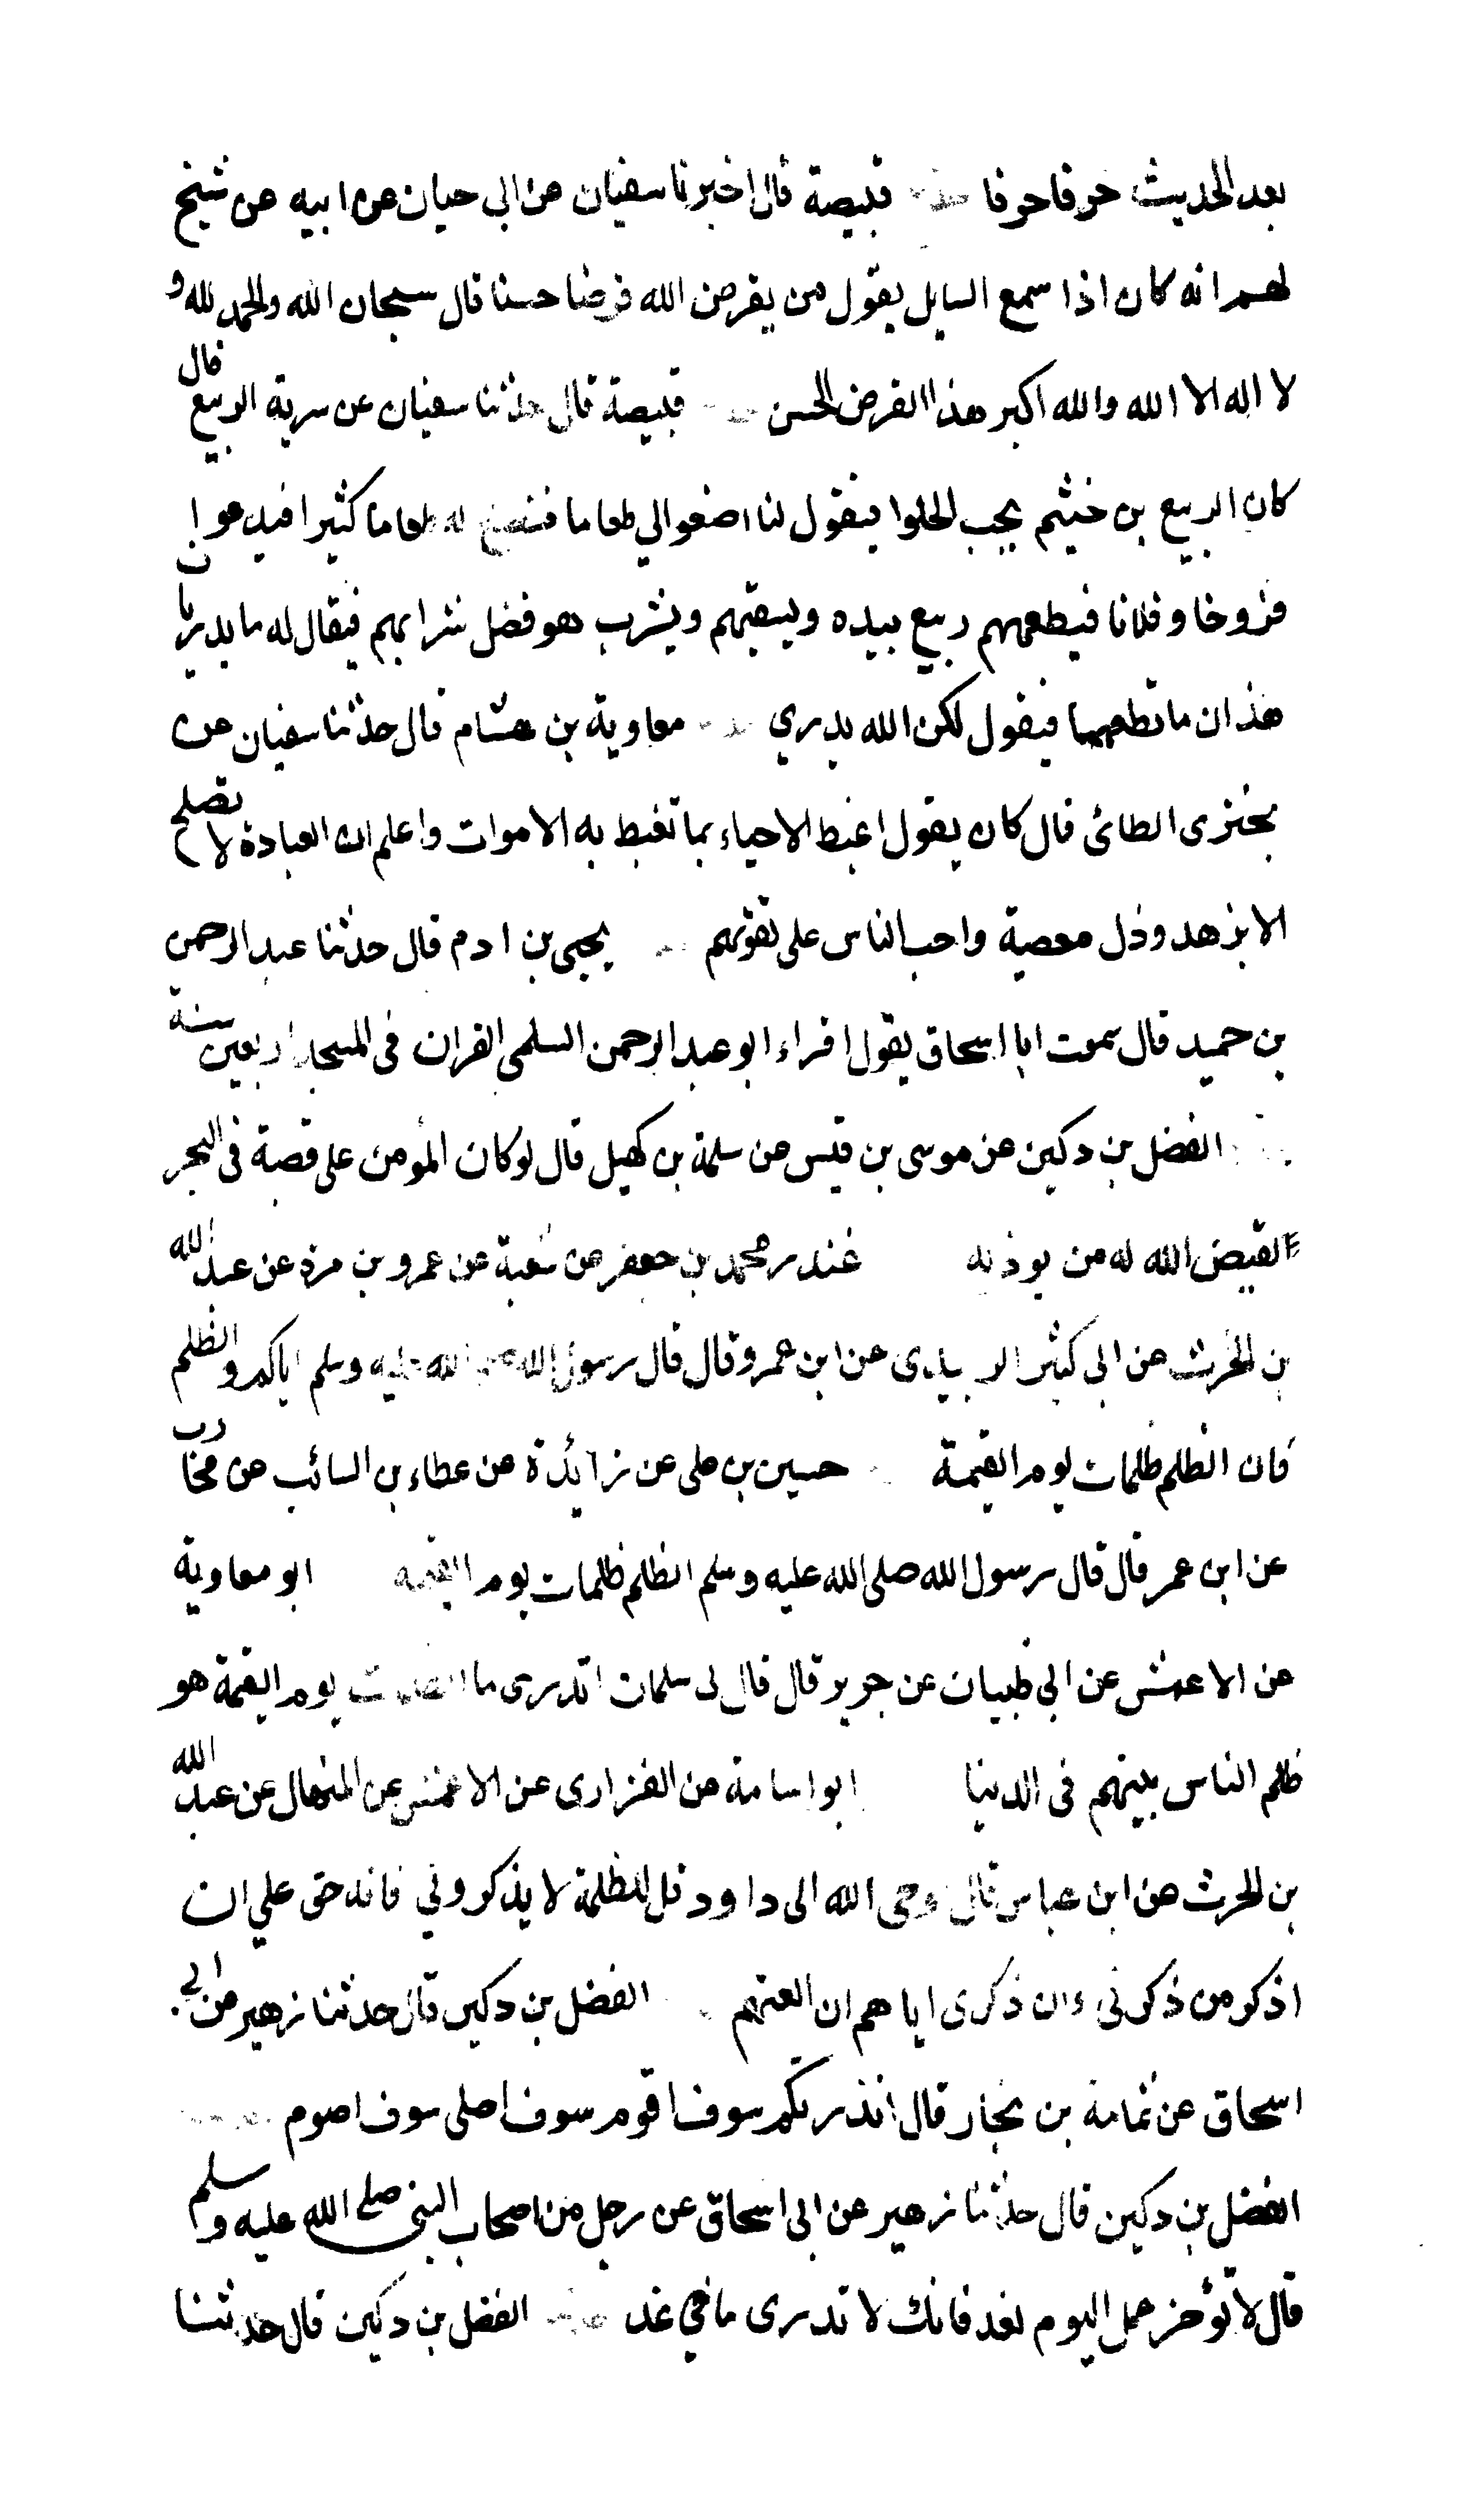 بعد الحديث حرفا حرفا قبيصة قال اخبرنا سفيان عن ابي حيان عن ابيه عن شيخ
لهم انه كان اذا سمع السايل يقول من يقرض الله قرضا حسنا قال سبحان الله والحمد لله و
لا اله الا الله والله اكبر هذا القرض الحسن قبيصة قال حدثنا سفيان عن سرية الربيع قال
كان الربيع بن خثيم يحب الحلوا فيقول لنا اصنعوا لي طعاما فنصنع له طعاما كثيرا فيدعوا
فروخا وفلانا فيطعمهم ربيع بيده ويسقيهم ويشرب هو فضل شرابهم فيقال له ما يدريان
هذان ما تطعمهما فيقول لكن الله يدري معاوية بن هشام قال حدثنا سفيان عن
بختري الطائى قال كان يقول اغبط الاحياء بما تغبط به الاموات واعلم ان العبادة لا تصلح
الا بزهد وذل معصية واحب الناس على تقوتهم يحيى بن ادم قال حدثنا عبد الرحمن
بن حميد قال سمعت ابا اسحاق يقول اقراء ابو عبد الرحمن السلمى القران فى المسجد اربعين سنة
الفضل بن دكين عن موسى بن قيس عن سلمة بن كهيل قال لو كان المؤمن على قصبة فى البحر
لقيض الله له من يوذيه غندر محمد بن جعفر عن شعبة عن عمرو بن مرة عن عبد الله
بن الحرث عن ابى كثير الزبيدى عن ابن عمرو قال قال رسول الله صلى الله عليه وسلم اياكم والظلم
فان الظلم ظلمات يوم القيمة حسين بن على عن زائدة عن عطاء بن السائب عن محارب
عن ابن عمر قال قال رسول الله صلى الله عليه وسلم الظلم ظلمات يوم القيمة ابو معاوية
عن الاعمش عن ابي ظبيان عن جرير قال قال لى سلمان اتدرى ما الظلمات يوم القيمة هو
ظلم الناس بينهم فى الدنيا ابو اسامة عن الفزارى عن الاعمش عن المنهال عن عبد الله
بن الحرث عن ابن عباس قال اوحى الله الى داود قل للظلمة لا يذكروني فانه حق علي ان
اذكر من ذكرنى وان ذكرى اياهم ان العنهم الفضل بن دكين قال حدثنا زهير عن ابي
اسحاق عن ثمامة بن بجاد قال انذرتكم سوف اقوم سوف اصلى سوف اصوم
الفضل بن دكين قال حدثنا زهير عن ابى اسحاق عن رجل من اصحاب النبى صلى الله عليه وسلم
قال لا تؤخر عمل اليوم لغد فانك لا تدرى ما في غد الفضل بن دكين قال حدثنا